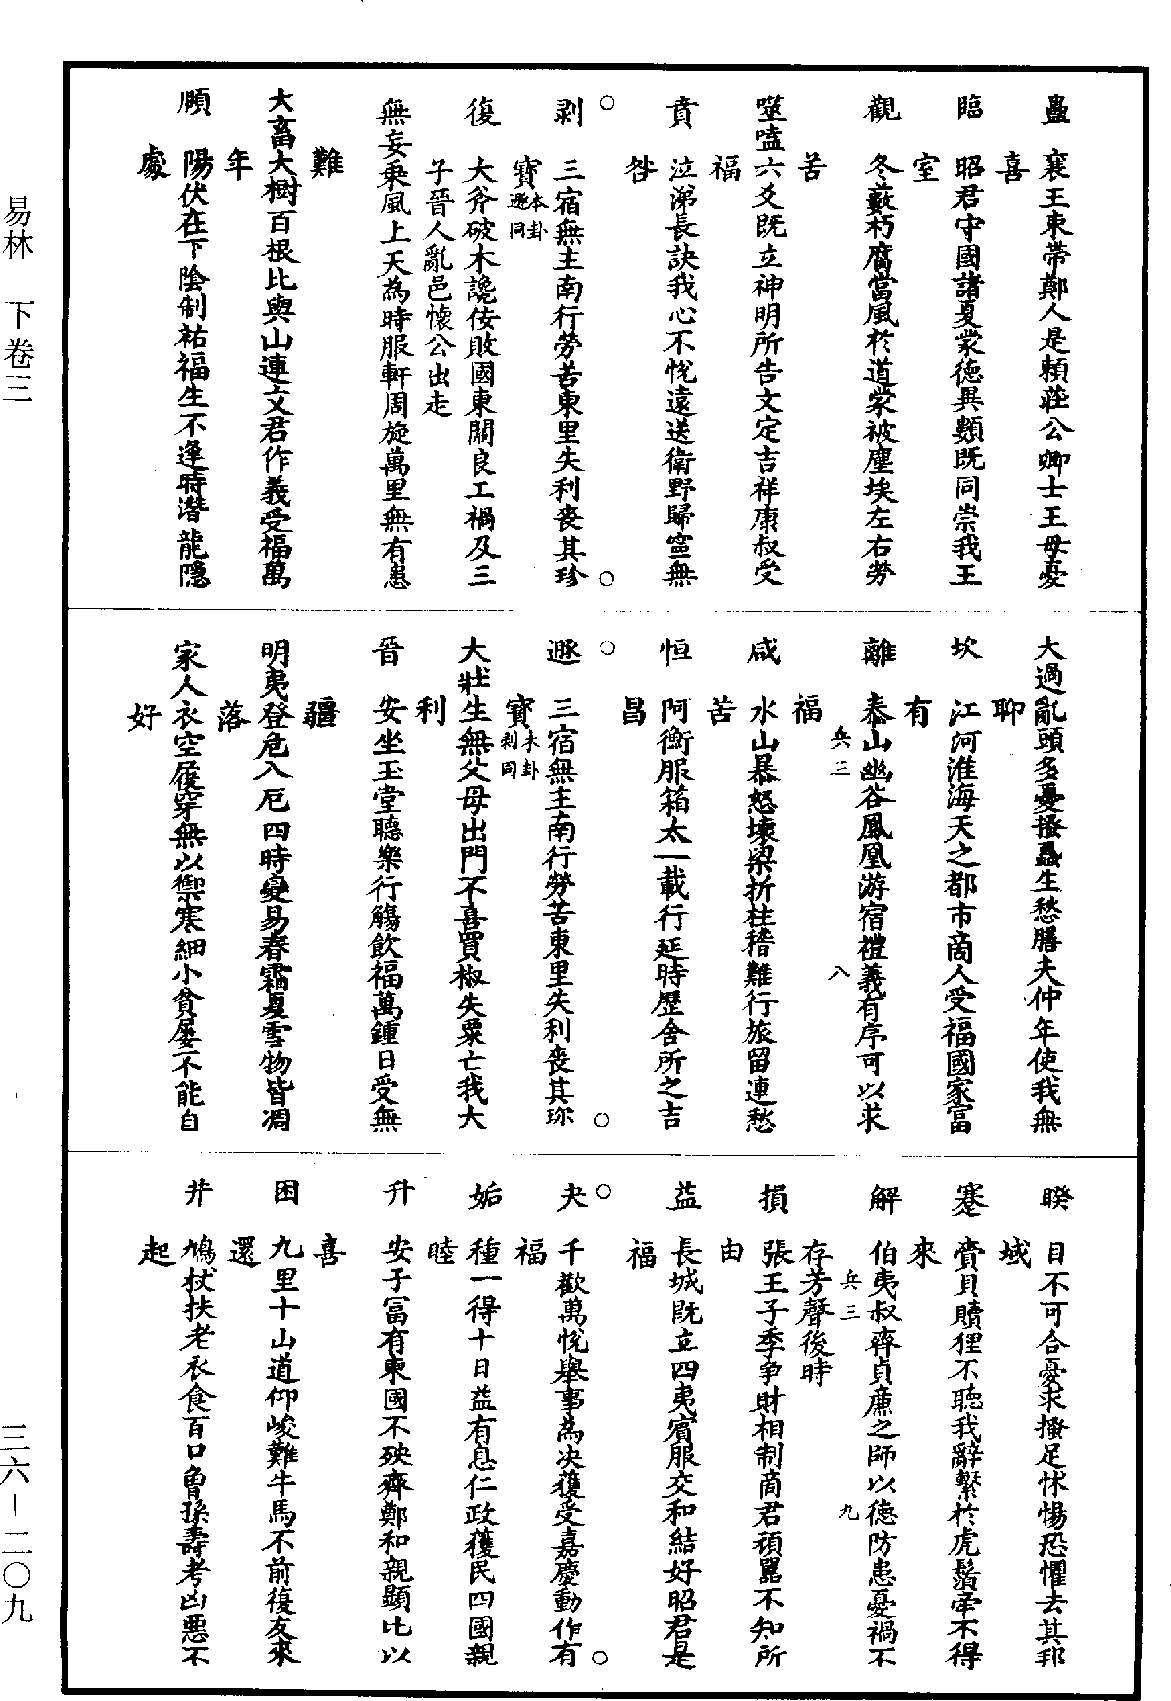 蠱　襄王束帶鄭人是賴莊公卿士王母憂
喜
臨　昭君守國諸夏蒙德異類既同崇我王
室
觀　冬藪朽腐當風於道蒙被塵埃左右勞
苦
噬嗑六爻既立神明所告文定吉祥康叔受
福
賁　泣涕長訣我心不悅遠送衛野歸寧無
咎
○　○
剥　三宿無主南行勞苦東里失利喪其珍
寶本卦遯同
復　大斧破木讒佞敗國東關良工禍及三
子晉人亂邑懷公出走
無妄乗風上天為時服軒周旋萬里無有患
難
大畜大樹百根比與山連文君作義受福萬
年
頤　陽伏在下陰制祐福生不逢時潛龍隱
處
大過亂頭多憂搔蝨生愁膳夫仲年使我無
聊
坎　江河淮海天之都市商人受福國家富
有
離　泰山幽谷鳳凰游宿禮義有序可以求
福
兵三　八
咸　水山暴怒壞梁折柱稽難行旅留連愁
苦
恒　阿衡服箱太一載行延時歷舍所之吉
昌
○　○
遯　三宿無主南行勞苦東里失利喪其珎
寶本卦剥同
大壯生無父母出門不喜買椒失粟亡我大
利
晉　安坐玉堂聽樂行觴飲福萬鍾日受無
疆
明夷登危入厄四時變易春霜夏雪物皆凋
落
家人衣空履穿無以禦寒細小貧屢不能自
好
睽　目不可合憂求搔足怵惕恐懼去其邦
域
蹇　賫貝贖狸不聽我辭繫於虎鬚牽不得
來
解　伯夷叔齊貞廉之師以德防患憂禍不
存芳聲後時
兵三　九
損　張王子季爭財相制商君頑嚚不知所
由
益　長城既立四夷賓服交和結好昭君是
福
○　○
夬　千歡萬悅舉事為决獲受嘉慶動作有
福
姤　種一得十日益有息仁政獲民四國親
睦
升　安子富有東國不殃齊鄭和親顯比以
喜
困　九里十山道仰峻難牛馬不前復友來
還
井　鳩杖扶老衣食百口魯孫壽考凶惡不
起
易林　下卷三
三六－二〇九